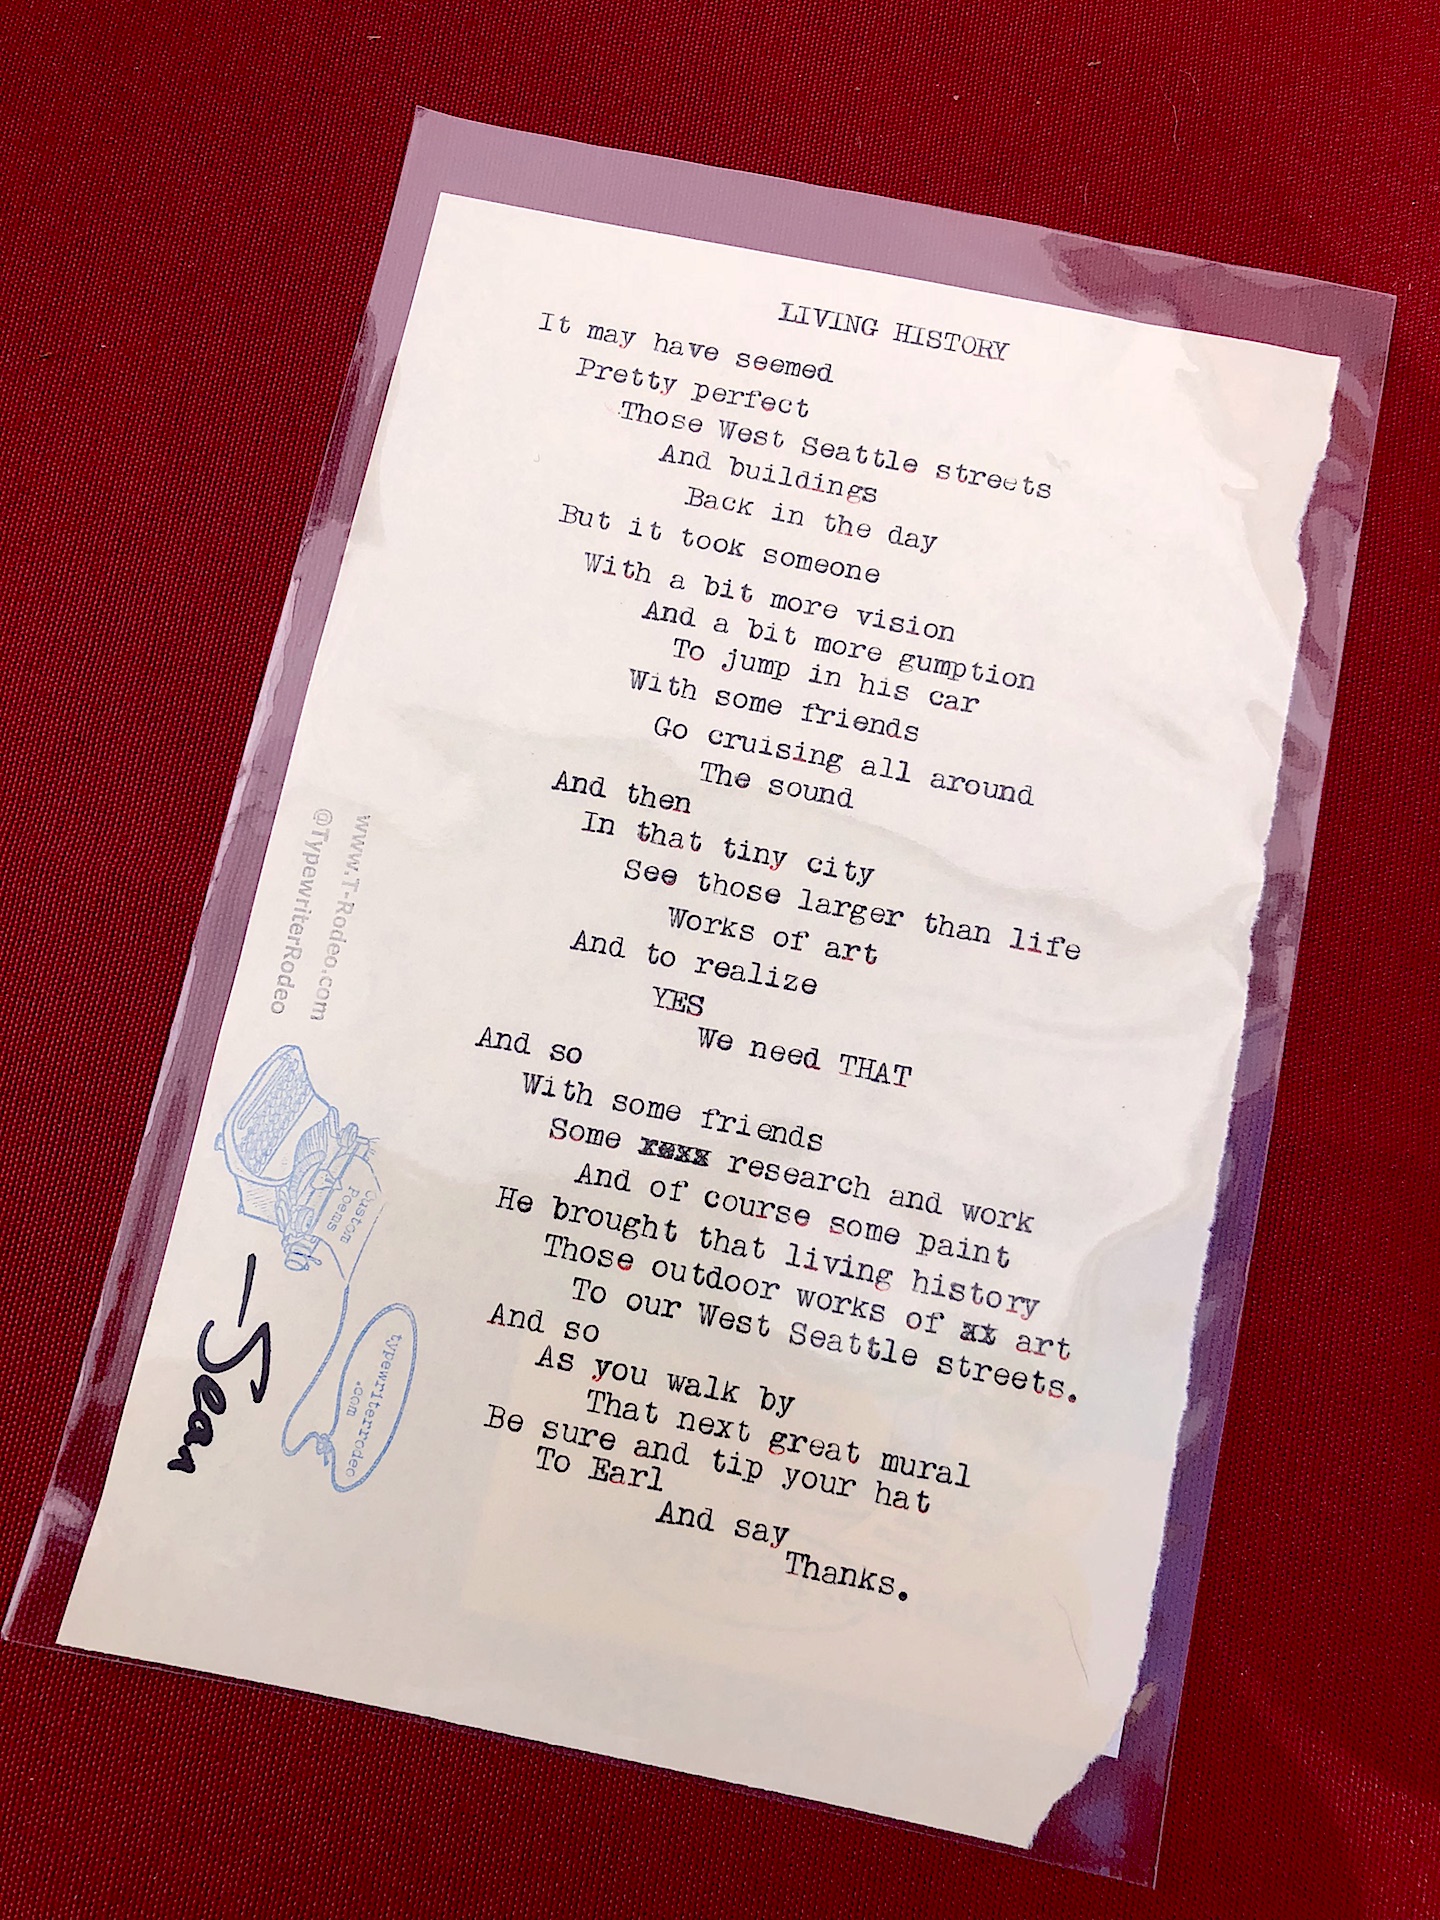 LIVING HISTORY
It may have seemed
Pretty perfect
Those West Seattle streets
And buildings
Back in the day
But it took someone
With a bit more vision
And a bit more gumption
To jump in his car
With some friends
Go cruising all around
The sound
And then
In that tiny city
See those larger than life
Works of art
And to realize
YES
We need THAT
And so
With some friends
Some research and work
And of course some paint
He brought that living history
Those outdoor works of art
To our West Seattle streets.
And so
As you walk by
That next great mural
Be sure and tip your hat
To Earl
And say
Thanks.
www.T-Rodeo.com
@TypewriterRodeo
Custom
Poems
typewriterrodeo
.com
—Sean